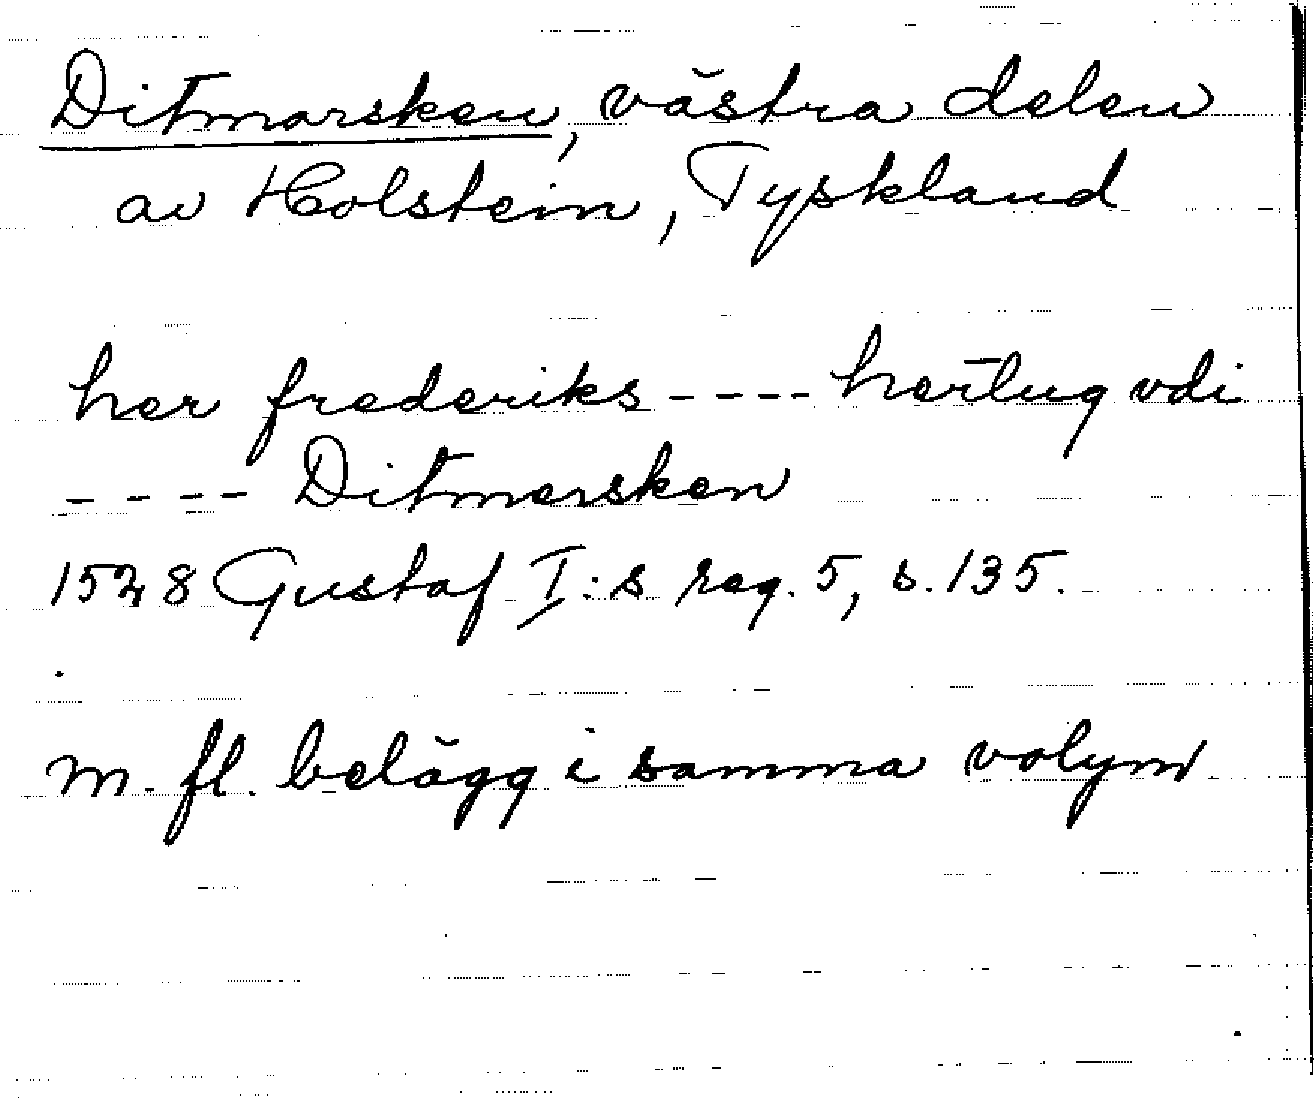 Ditmarsken, västra delen
av Holstein, Tyskland
her frederiks ---- hertug vdi
---- Ditmersken
1528 Gustaf I:s reg. 5, s. 135.
m. fl. belägg i samma volym